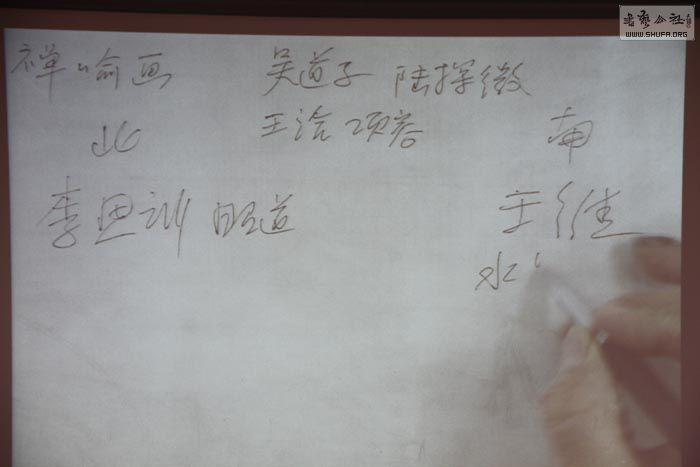 書藝公社
WWW.SHUFA.ORG
禅喻画 吴道子 陆探微
王洽 项容
北 南
李思训 昭道 王维
水